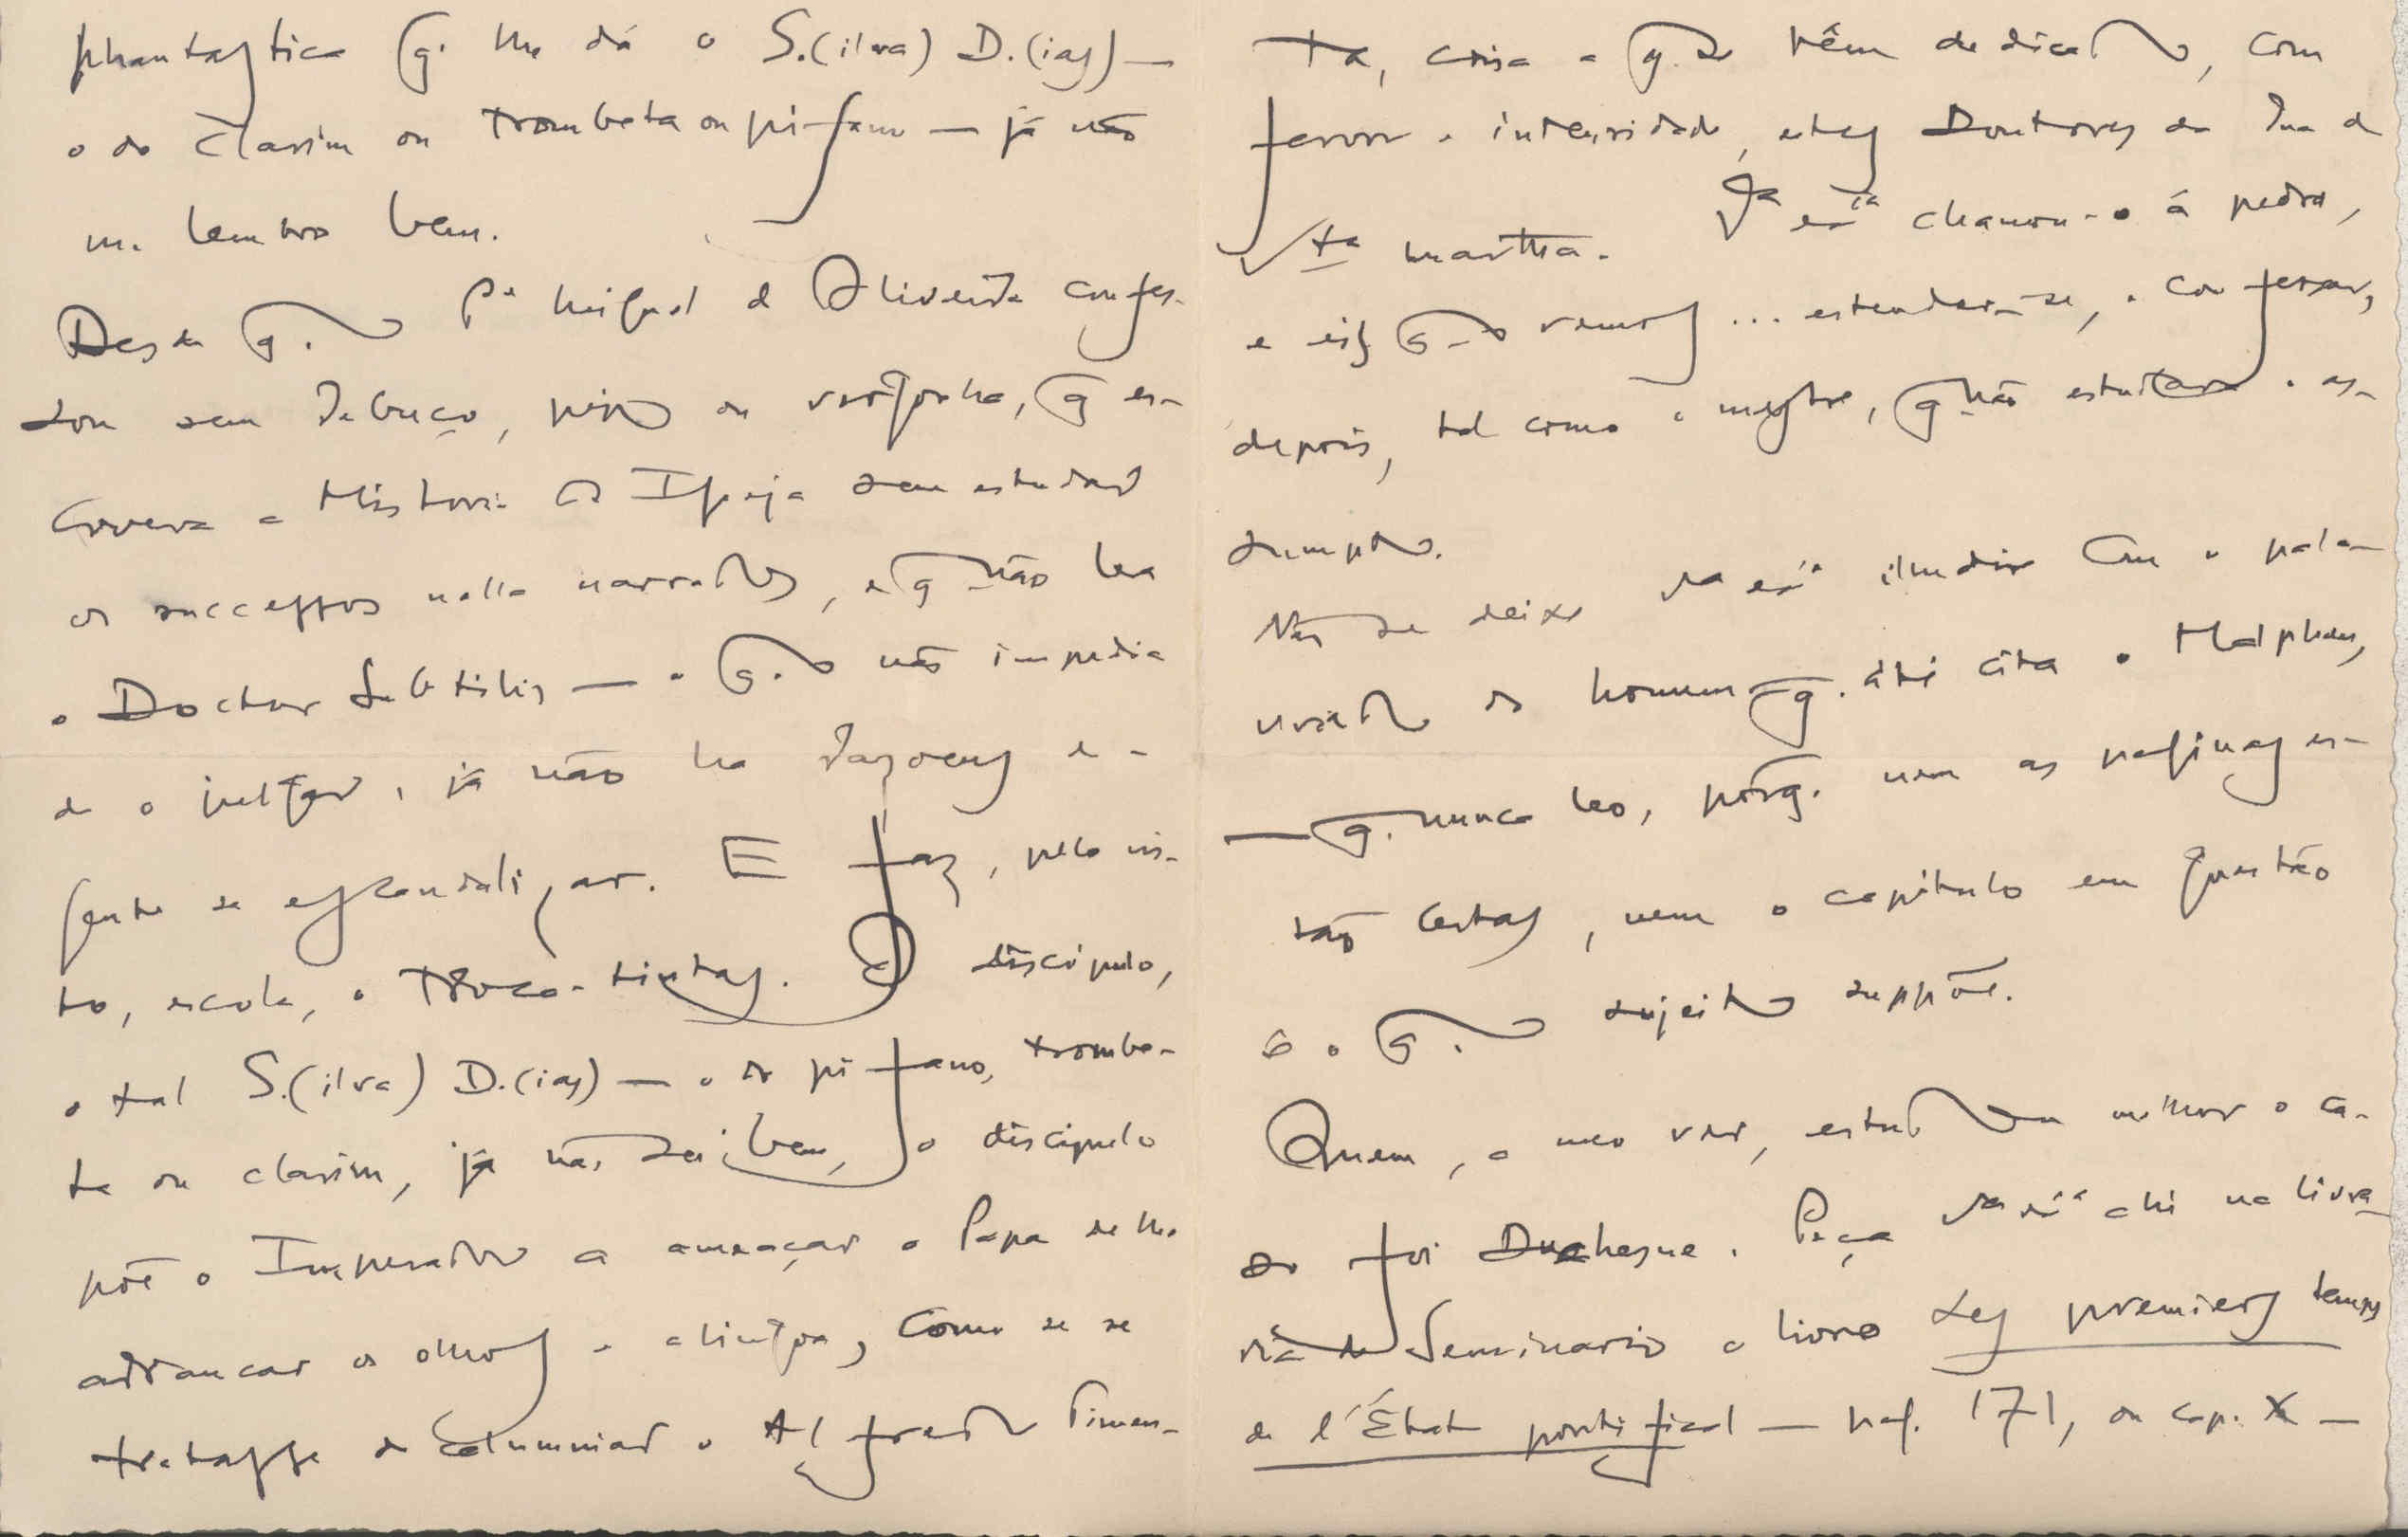 phantastica q. lhe dá o S.(ilva) D.(ias) —
o do clarim ou trombeta ou pifano — já não
me lembro bem.
Desde q. o Pe Miguel de Oliveira confes-
sou sem rebuço, pejo ou vergonha, q es-
crevera a Historia da Igreja sem estudar
os successos nella narrados, e q não lera
o Doctor Subtilis — o q. o não impedia
de o julgar, já não ha razoens de a
gente se escandalizar. E faz, pelo vis-
to, escola, o troca-tintas. O discipulo,
o tal S.(ilva) D.(ias) — o do pifano, trombe-
ta ou clarim, já não sei bem, o discipulo
põe o Imperador a ameaçar o Papa de lhe
arrancar os olhos e a lingoa, como se se
tratasse de calumniar o Alfredo Pimen-
ta, coisa a q. se têm dedicado, com
fervor e intensidade, estes Doutores da Rua de
Sta Martha. Va exa chamou-o á pedra,
e eis q. o vemos ... estender-se, e confessar,
depois, tal como o mestre, q não estudara o as-
sumpto.
Não se deixe Va exa illudir com o pala-
vriado do homem q. até cita o Halphen,
— q. nunca leo, porq. nem as paginas es-
tão certas, nem o capitulo em questão
é o q. o sujeito suppõe.
Quem, a meo ver, estudou melhor o ca-
so foi Duchesne. Peça Va exa ahi na livra-
ria do Seminario o livro Les premiers temps
de l'État pontifical — pag. 171, ou cap. X —